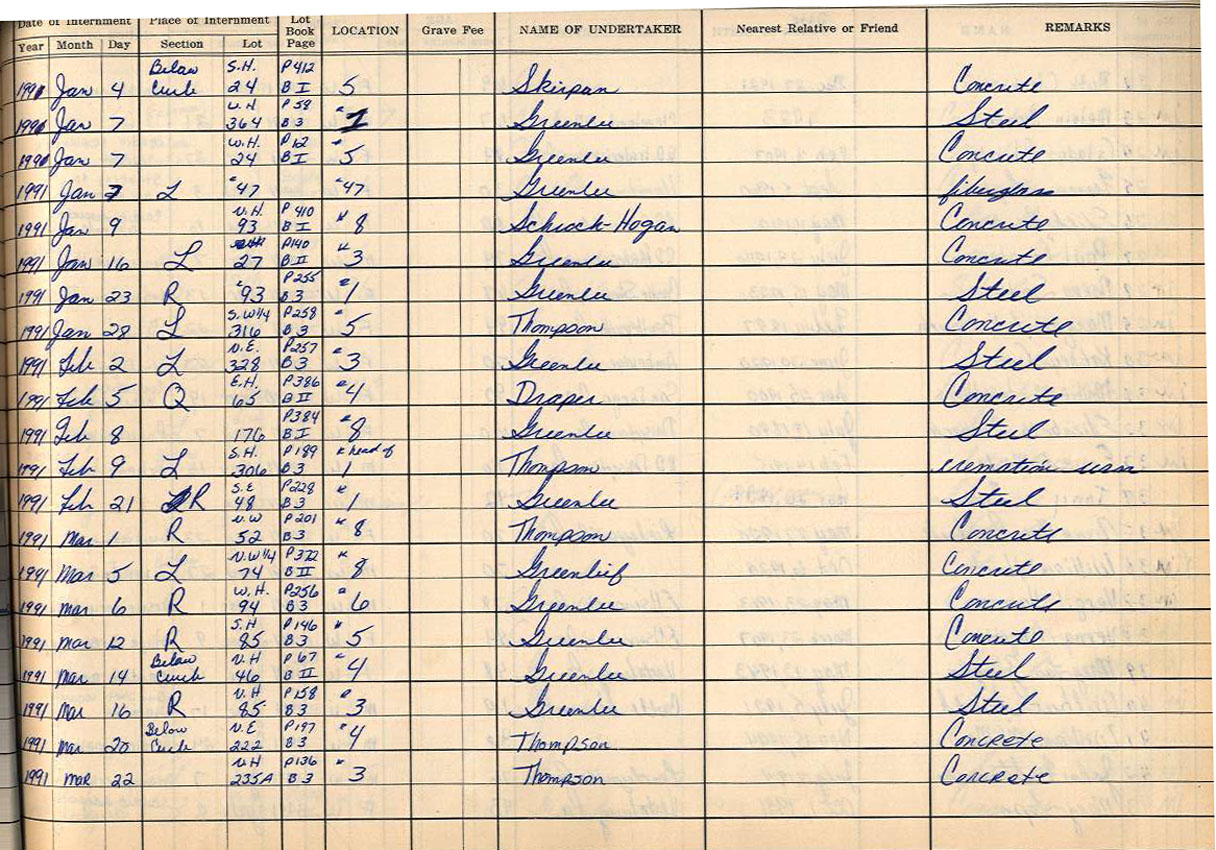 Date of Internment Place of Internment Lot Book Page LOCATION Grave Fee NAME OF UNDERTAKER Nearest Relative or Friend REMARKS
Year Month Day Section Lot
Below S.H. P412
1991 Jan 4 Curb 24 B I 5 Skirpan Concrete
W.H P58 "
1991 Jan 7 364 B3 1 Greenlee Steel
W.H. P12 "
1991 Jan 7 24 B I 5 Greenlee Concrete
1991 Jan 7 L "47 "47 Greenlee fiberglass
N.H. P410 "
1991 Jan 9 93 B I 8 Schrock-Hogan Concrete
P140 "
1991 Jan 16 L 27 B II 3 Greenlee Concrete
P255 "
1991 Jan 23 R "93 B3 1 Greenlee Steel
S.W1/4 P258 "
1991 Jan 28 L 316 B3 5 Thompson Concrete
N.E. P257 "
1991 Feb 2 L 328 B3 3 Greenlee Steel
E.H. P386 "
1991 Feb 5 Q 65 B II 4 Draper Concrete
P384 "
1991 Feb 8 176 B I 8 Greenlee Steel
S.H. P189 " head of
1991 Feb 9 L 306 B3 1 Thompson cremation urn
S.E P228 "
1991 Feb 21 R 48 B3 1 Greenlee Steel
N.W P201 "
1991 Mar 1 R 52 B3 8 Thompson Concrete
N.W1/4 P322 "
1991 Mar 5 L 74 B II 8 Greenlief Concrete
W.H. P256 "
1991 Mar 6 R 94 B3 6 Greenlee Concrete
S.H P146 "
1991 Mar 12 R 85 B3 5 Greenlee Concrete
Below N.H P67 "
1991 Mar 14 Curb 46 B II 4 Greenlee Steel
N.H P158 "
1991 Mar 16 R 85 B3 3 Greenlee Steel
Below N.E. P197 "
1991 Mar 20 Curb 222 B3 4 Thompson Concrete
N.H P136 "
1991 Mar 22 235A B3 3 Thompson Concrete